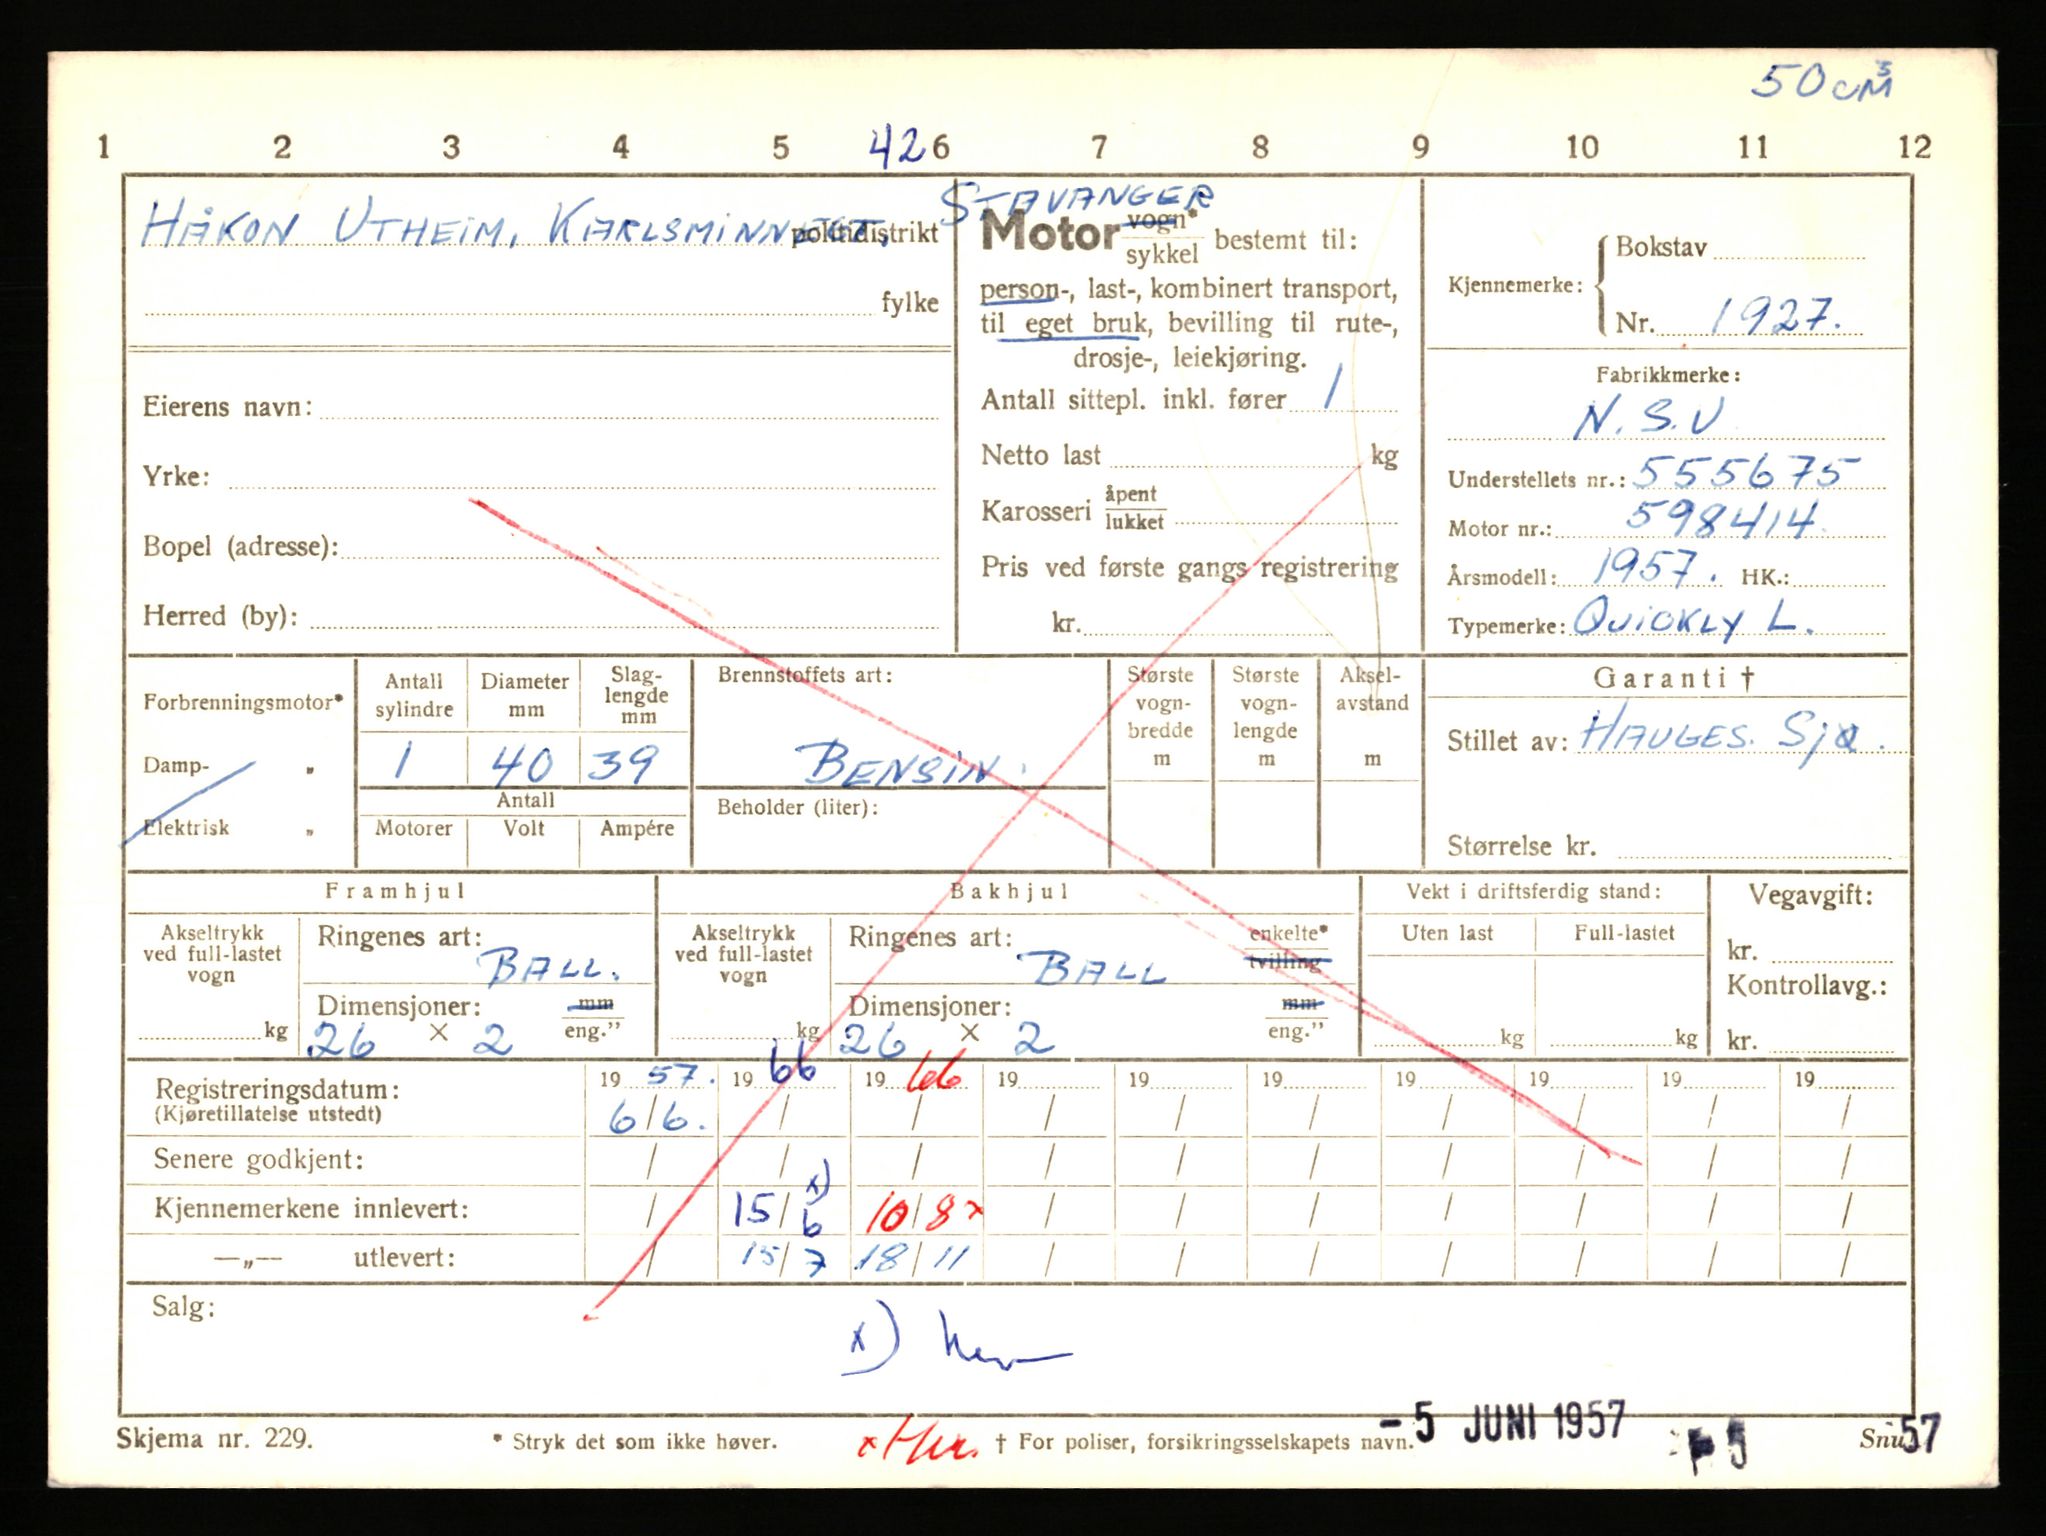 50 cM³
1 2 3 4 5 42 6 7 8 9 10 11 12
HÅKON UTHEIM, KARLSMINNEGT. STAVANGER
politidistrikt
fylke
Eierens navn:
Yrke:
Bopel (adresse):
Herred (by):
Motor vogn*
sykkel bestemt til:
person-, last-, kombinert transport,
til eget bruk, bevilling til rute-,
drosje-, leiekjøring.
Antall sittepl. inkl. fører 1
Netto last kg
Karosseri åpent
lukket
Pris ved første gangs registrering
kr.
Kjennemerke: Bokstav
Nr. 1927.
Fabrikkmerke:
N.S.U
Understellets nr.: 555675
Motor nr.: 598414.
Årsmodell: 1957. HK.:
Typemerke: QUICKLY L.
Forbrenningsmotor*
Damp- „
Elektrisk „
Antall sylindre
Diameter mm
Slag-lengde mm
1 40 39
Antall
Motorer Volt Ampére
Brennstoffets art:
BENSIN.
Beholder (liter):
Største vogn-bredde m
Største vogn-lengde m
Aksel-avstand m
Garanti †
Stillet av: HAUGES. Sjø.
Størrelse kr.
Framhjul
Akseltrykk ved full-lastet vogn
kg
Ringenes art:
BALL.
Dimensjoner: mm
26 × 2 eng.”
Bakhjul
Akseltrykk ved full-lastet vogn
kg
Ringenes art: enkelte*
BALL tvilling
Dimensjoner: mm
26 × 2 eng.”
Vekt i driftsferdig stand:
Uten last Full-lastet
kg kg
Vegavgift:
kr.
Kontrollavg.:
kr.
Registreringsdatum: 19 57. 19 66 19 66 19 19 19 19 19 19 19
(Kjøretillatelse utstedt) 6/6. / / / / / / / / /
Senere godkjent: / / / / / / / / / /
Kjennemerkene innlevert: / 15/6 x) 10/8 x / / / / / / /
—„— utlevert: / 15/7 18/11 / / / / / / /
Salg:
x)
-5 JUNI 1957
Skjema nr. 229. * Stryk det som ikke høver. † For poliser, forsikringsselskapets navn. 5 57